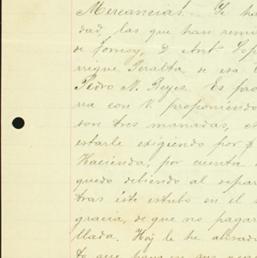 Mercancías. — Se ha
dad, las que han remi
se Tomoy, D. Antº Lop
rrique Peralta, se esa
Pedro N. Reyes. Es pos
na con V. proponiendo
son tres manadas, et
estarle exigiendo por D
Hacienda, por cuenta
quedo debiendo al separ
tras éste estubo en el
gracia, de que no pagar
llada. Hoy le he
lo que